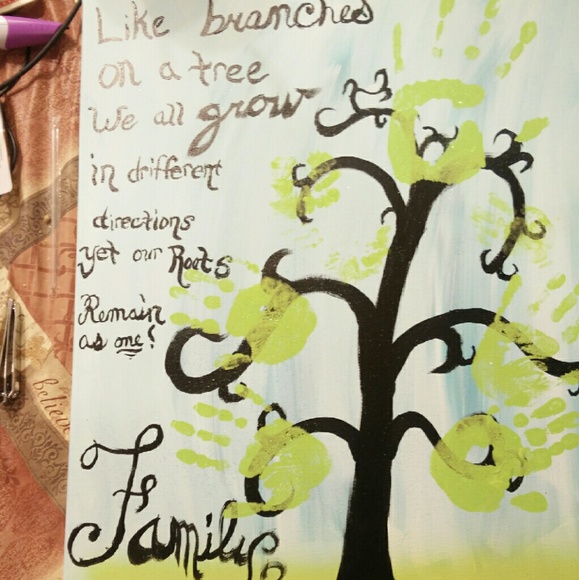 Like branches
on a tree
We all grow
in drifferent
directions
yet our Roots
Remain
as one!
Family
believe